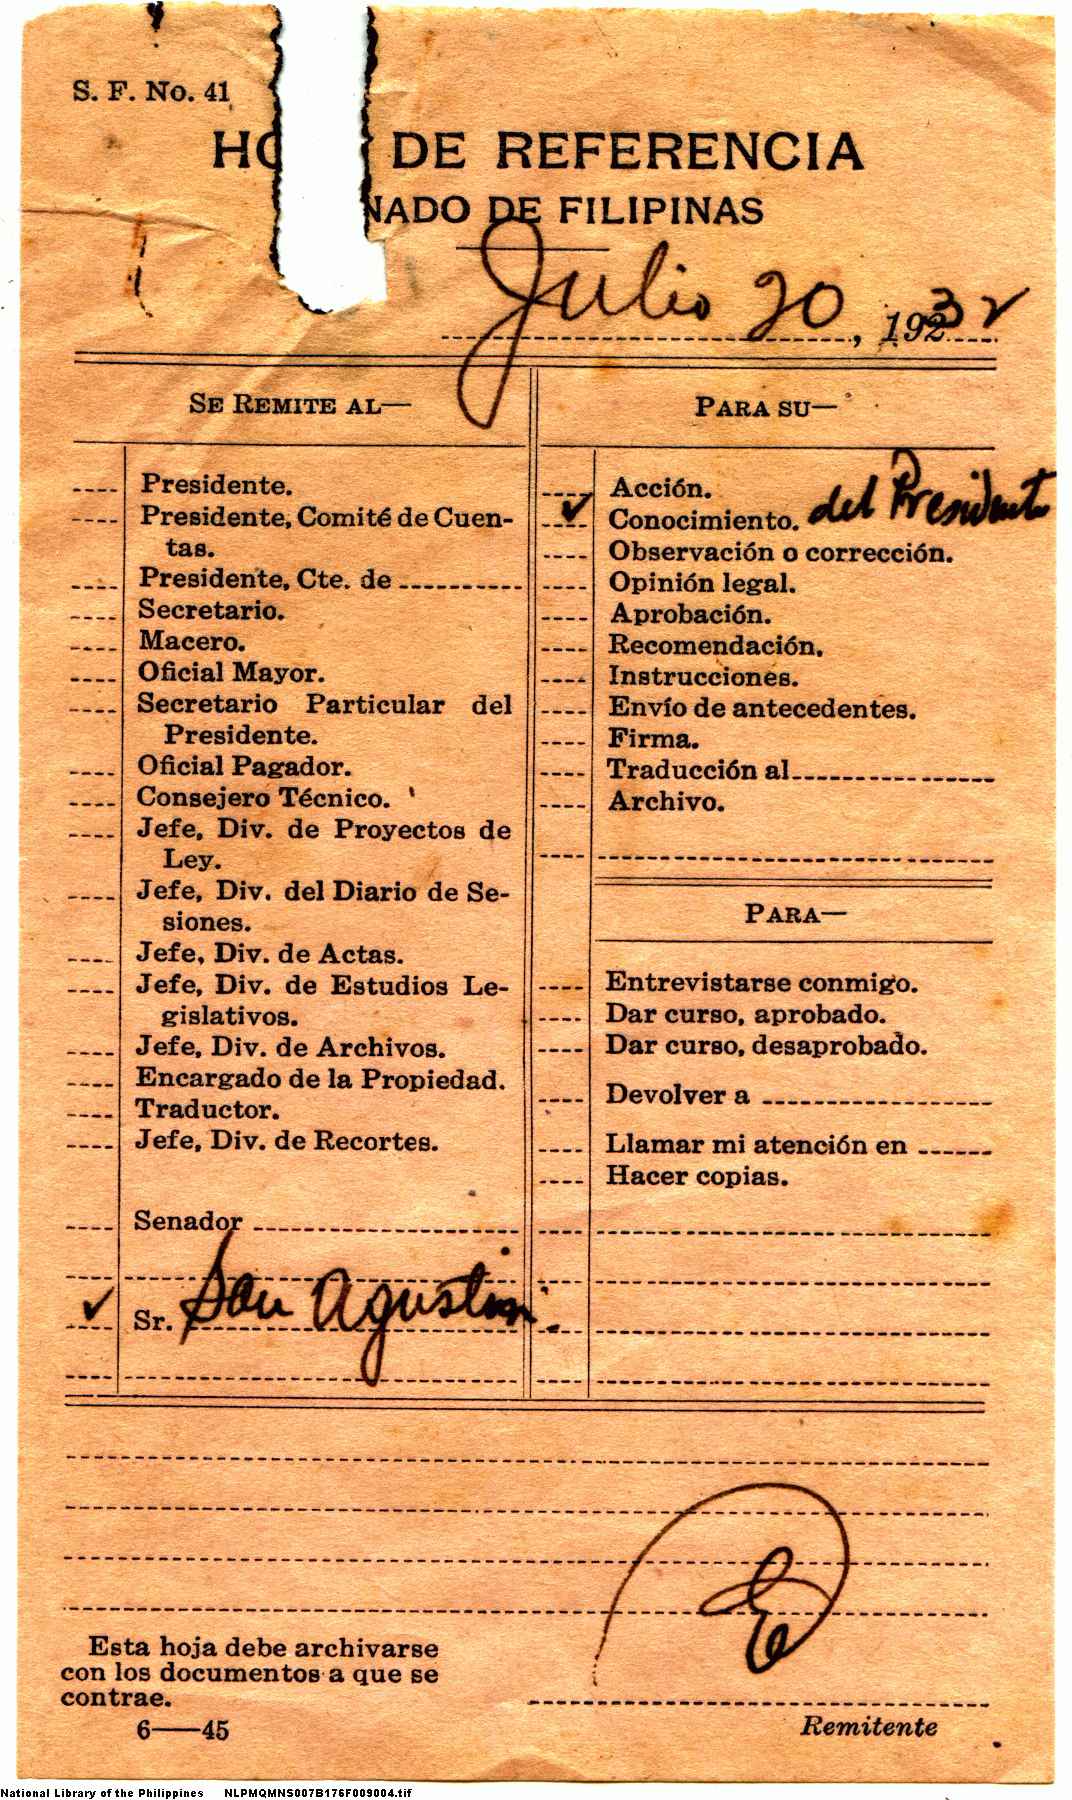 S. F. No. 41
HO DE REFERENCIA
NADO DE FILIPINAS
Julio 20, 1932
SE REMITE AL—
Presidente.
Presidente, Comité de Cuen-
tas.
Presidente, Cte. de
Secretario.
Macero.
Oficial Mayor.
Secretario Particular del
Presidente.
Oficial Pagador.
Consejero Técnico.
Jefe, Div. de Proyectos de
Ley.
Jefe, Div. del Diario de Se-
siones.
Jefe, Div. de Actas.
Jefe, Div. de Estudios Le-
gislativos.
Jefe, Div. de Archivos.
Encargado de la Propiedad.
Traductor.
Jefe, Div. de Recortes.
Senador
✓ Sr. San Agustin
PARA SU—
Acción.
✓ Conocimiento. del Presidente
Observación o corrección.
Opinión legal.
Aprobación.
Recomendación.
Instrucciones.
Envío de antecedentes.
Firma.
Traducción al
Archivo.
PARA—
Entrevistarse conmigo.
Dar curso, aprobado.
Dar curso, desaprobado.
Devolver a
Llamar mi atención en
Hacer copias.
Esta hoja debe archivarse
con los documentos a que se
contrae.
6——45
Remitente
National Library of the Philippines NLPMQMNS007B176F009004.tif